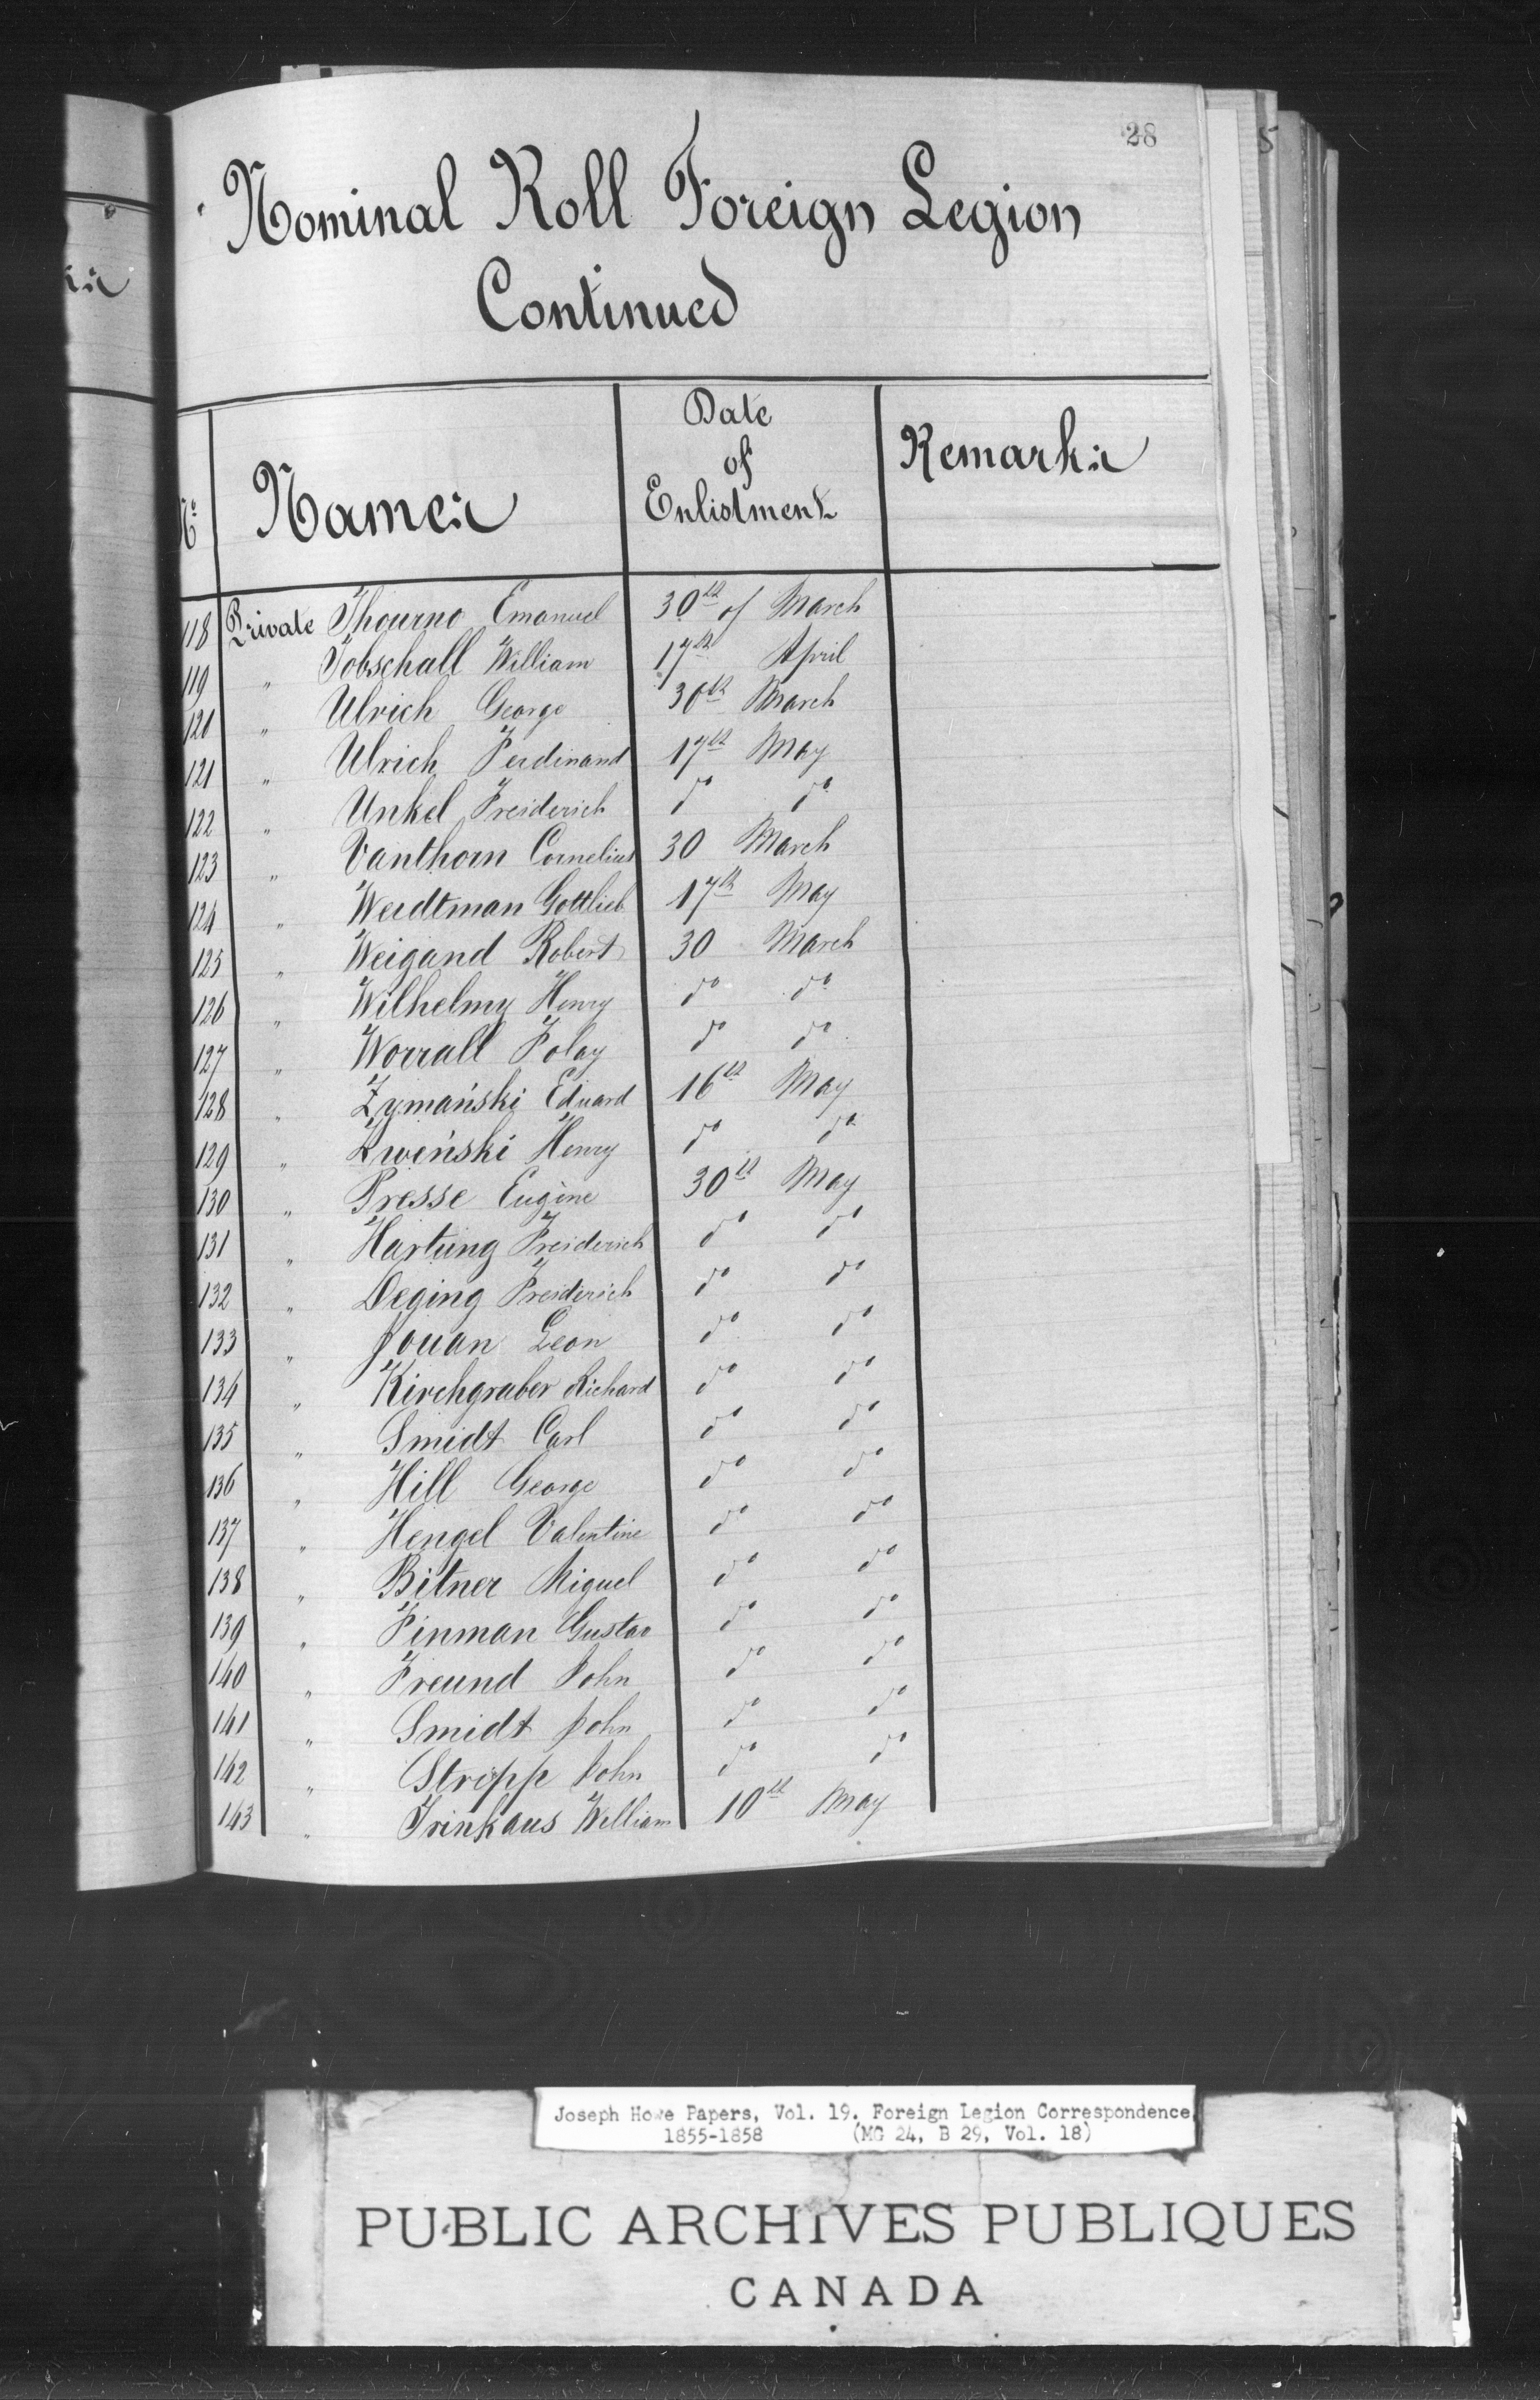 28
5
Nominal Roll Foreign Legion
Continued
No. Names Date of Enlistment Remarks
118 Private Thourno Emanuel 30th of March
119 " Tobschall William 17th April
121 " Ulrich George 30th March
121 " Ulrich Ferdinand 17th May
122 " Unkel Freiderich do do
123 " Vanthorn Cornelius 30 March
124 " Weidtman Gottlieb 17th May
125 " Weigand Robert 30 March
126 " Wilhelmy Henry do do
127 " Worrall Folay do do
128 " Zymański Eduard 16th May
129 " Zweński Henry do do
130 " Presse Eugène 30th May
131 " Hartung Freiderich do do
132 " Deging Freiderich do do
133 " Jouan Leon do do
134 " Kirchgraber Richard do do
135 " Smidt Carl do do
136 " Hill George do do
137 " Hengel Valentine do do
138 " Bitner Miguel do do
139 " Finman Gustav do do
140 " Freund John do do
141 " Smidt John do do
142 " Stripp John do do
143 " Trinkaus William 10th May
Joseph Howe Papers, Vol. 19. Foreign Legion Correspondence,
1855-1858 (MG 24, B 29, Vol. 18)
PUBLIC ARCHIVES PUBLIQUES
CANADA